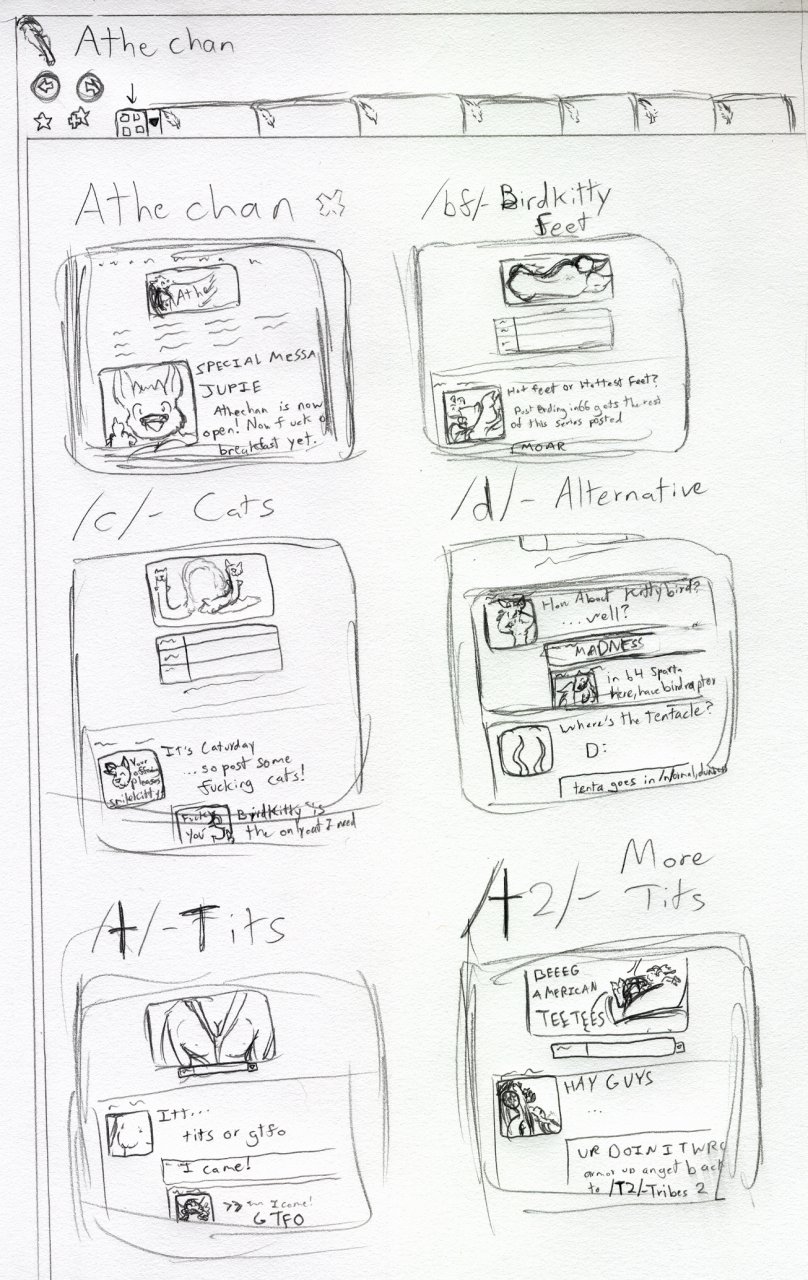 Athe chan
Athe chan
/bf/- Birdkitty
Feet
Athe
SPECIAL MESSA
JUPIE
Athechan is now
open! Now fuck o
breakfast yet.
Hot feet or Hottest Feet?
Post Ending in 66 gets the rest
of this series posted
MOAR
/c/- Cats
/d/- Alternative
LOL
How About Kittybird?
...well?
MADNESS
in b4 Sparta
Here, have birdraptor
It's Caturday
...so post some
fucking cats!
Your
pleases
smilekitty
Fuck
you
BirdKitty is
the only cat I need
Where's the Tentacle?
D:
tenta goes in /
/t/- Tits
/t2/- More
Tits
BEEEG
AMERICAN
TEETEES
Itt...
tits or gtfo
I came!
>> I came!
GTFO
HAY GUYS
...
UR DOIN IT WRO
up angel back
to /T2/-Tribes 2